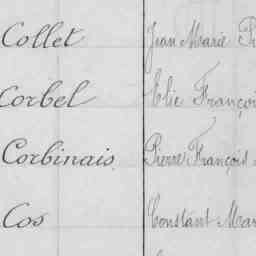 Collet Jean Marie
Corbel Elie François
Corbinais Pierre François
Cos Constant Mar